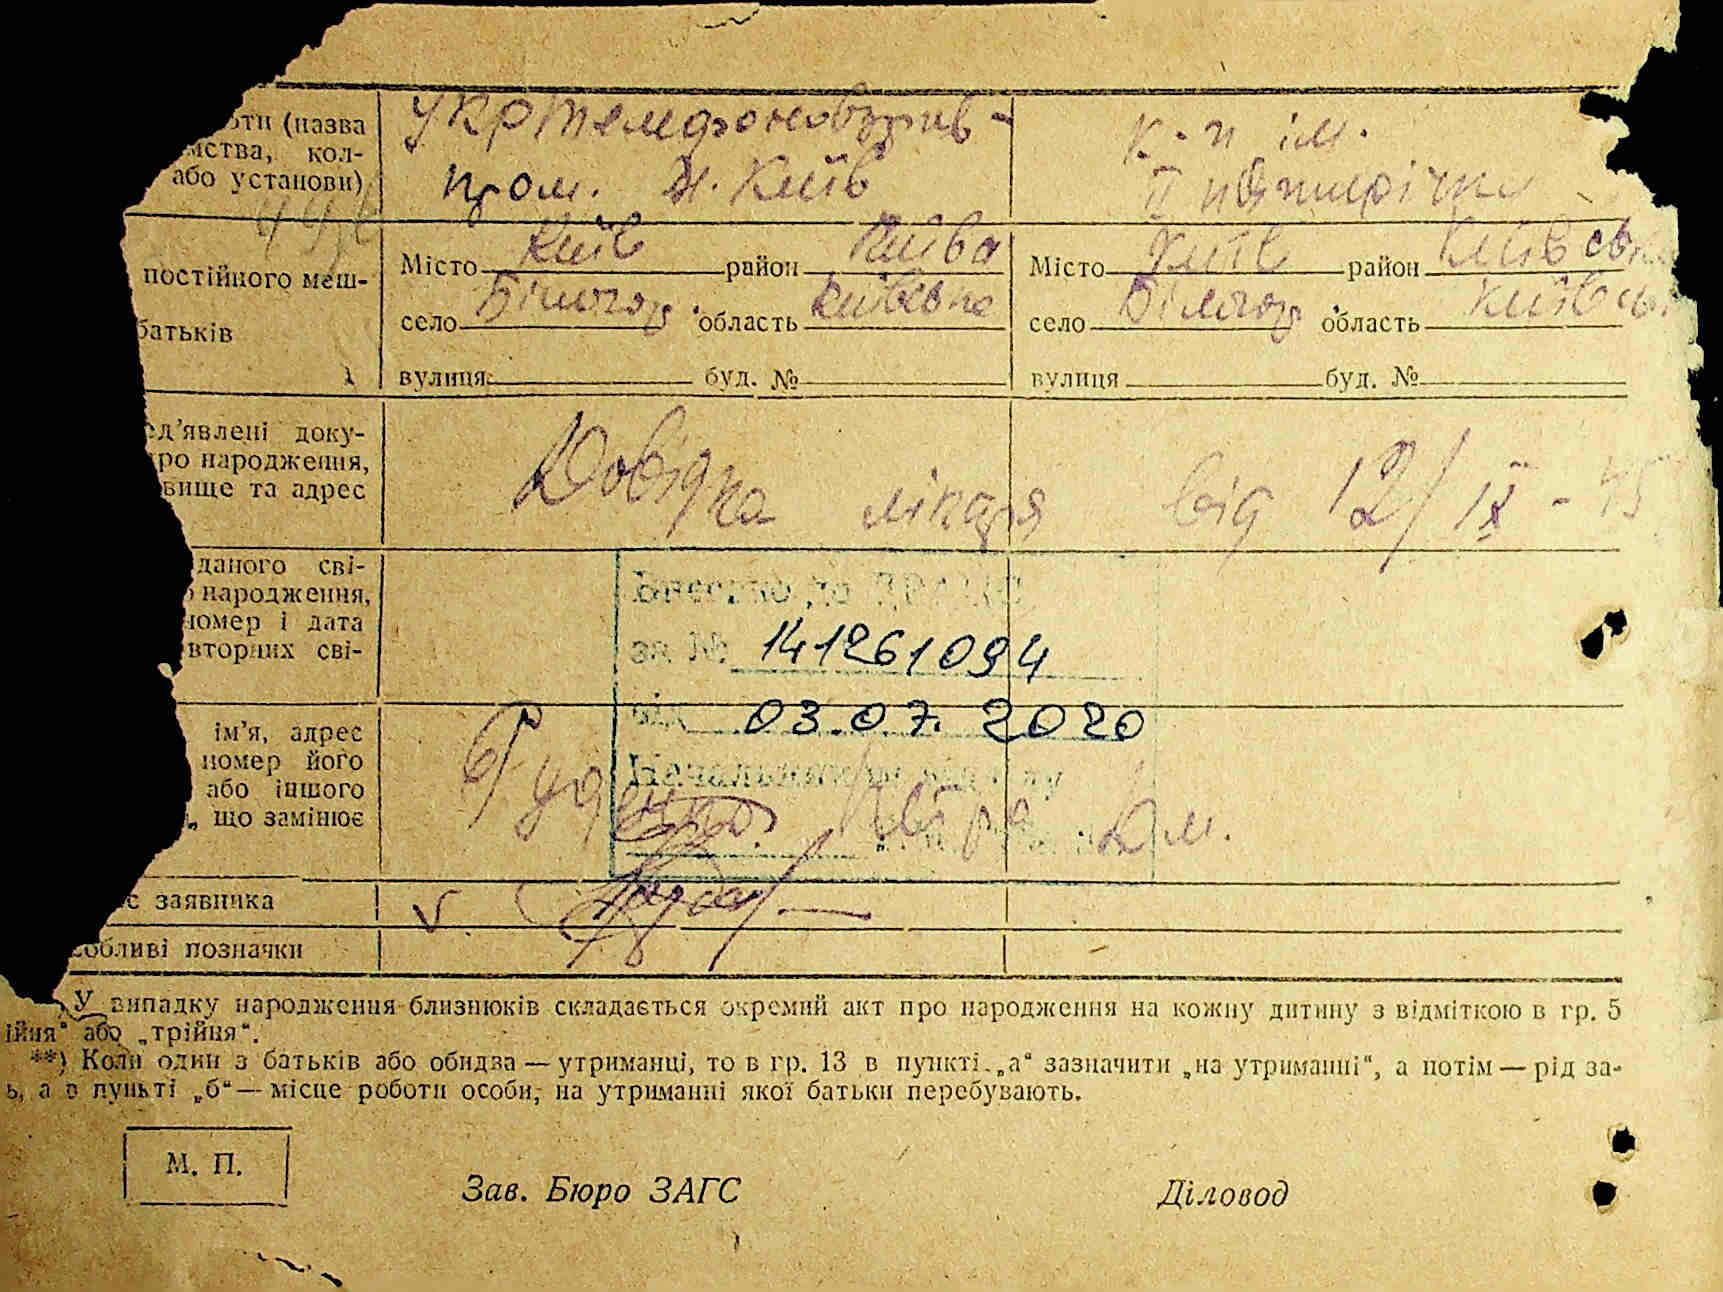 оти (назва
мства, кол-
або установи)
пром. м. Київ
к-п ім.
II п'ятирічки
постійного меш-
батьків
Місто Київ район Києва
село Білогор. область Київська
вулиця буд. №
Місто Київ район Київська
село Білогор. область Київськ
вулиця буд. №
ед'явлені доку-
ро народження,
вище та адрес
Довідка лікаря від 12/IX - 45
даного сві-
народження,
номер і дата
вторних сві-
Внесено до ДРАЦС
за № 141261094
від 03.07.2020
ім'я, адрес
номер його
або іншого
, що замінює
Руденко Дм.
с заявника
V
собливі позначки
У випадку народження близнюків складається окремий акт про народження на кожну дитину з відміткою в гр. 5
ійня“ або „трійня“.
**) Коли один з батьків або обидва — утриманці, то в гр. 13 в пункті „а“ зазначити „на утриманні“, а потім — рід за-
ь, а в пункті „б“ — місце роботи особи, на утриманні якої батьки перебувають.
М. П.
Зав. Бюро ЗАГС
Діловод